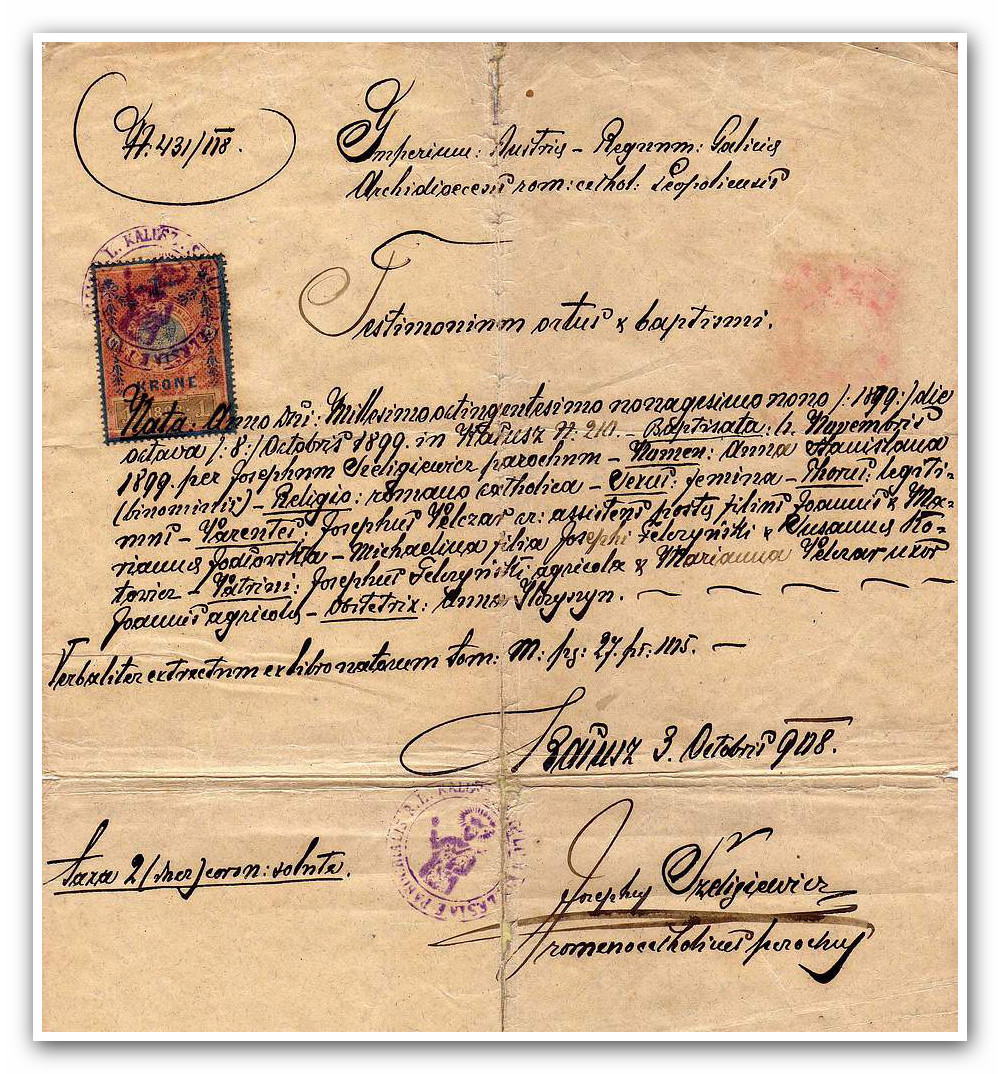 N. 431/908.
Imperium: Austriae – Regnum: Galiciae
Archidioecesis rom: cathol: Leopoliensis
L. KALUSZ
Testimonium ortus & baptismi.
KRONE
1
Nata: Anno Dni: Millesimo octingentesimo nonagesimo nono /:1899:/ die
octava /:8:/ Octobris 1899. in Kałusz N. – Baptisata: Novembris
1899. per Josephum Szeligiewicz parochum – Nomen: Anna Stanislava
(binominis) – Religio: romano catholica – Sexus: femina – Thorus: legiti-
mus – Parentes: Josephus Pelczar assistens filius Joannis & Ma-
riannae – Michaelina filia Josephi Felczyński & Susannae Ko-
towicz – Patrini: Josephus Felczyński agricola & Marianna Pelczar uxor
Joannis agricolae – Obstetrix: Anna
Verbaliter extractum ex libro natorum tom: pg: 27. 
Kałusz 3. Octobris 908.
ECCLESIAE PAROCHIALIS R. L. KALUSZ
taxa 2 (duae) coron: soluta.
Josephus Szeligiewicz
romanocatholicus parochus